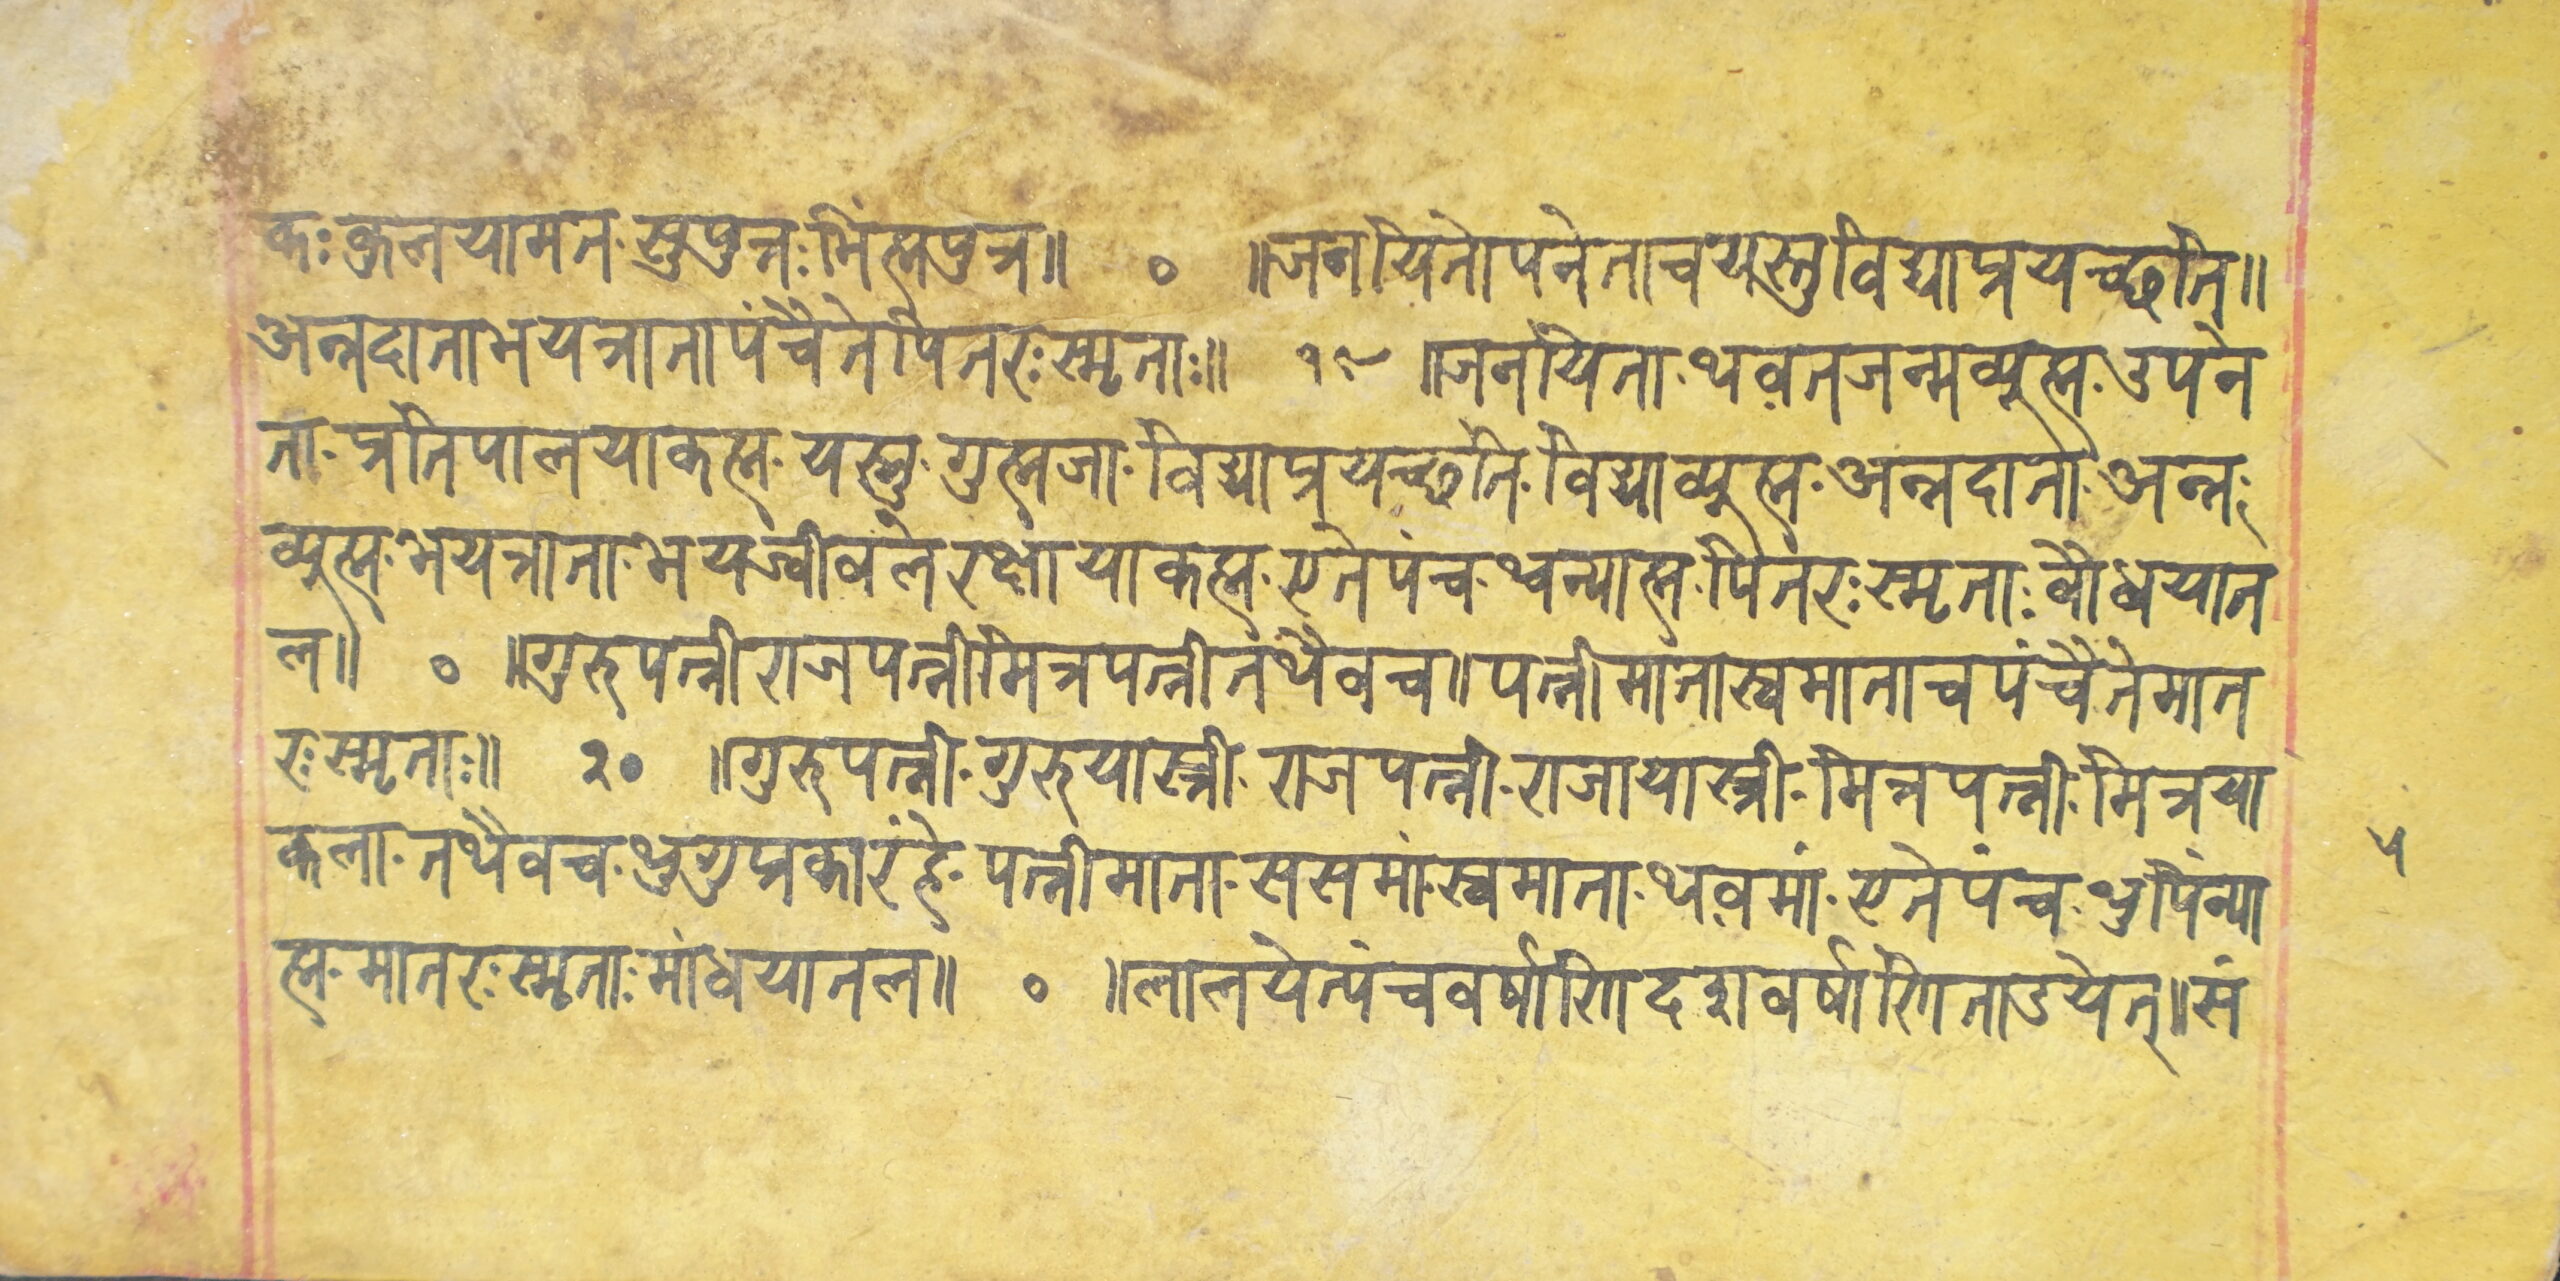 कः कुलयामत. सुपुत्रः भिंह्मपुत्र॥ ० ॥जनयितोपनेताचयस्तुविद्याप्रयच्छति॥
अन्नदाताभयत्रातापंचैतेपितरःस्मृताः॥ १९ ॥जनयिता. थव़तजन्मव्युह्म. उपने
ता. प्रतिपालयाकह्म. यस्तु. गुह्मजा. विद्याप्रयच्छति. विद्याव्युह्म. अन्नदाता. अन्न.
व्युह्म. भयत्राता. भयज्वीवले रक्षायाकह्म. एतेपंच. थ्वन्याह्म. पितरःस्मृताः वौधयात
ल॥ ० ॥गुरुपत्नीराजपत्नीमित्रपत्नीतथैवच॥पत्नीमातास्वमाताचपंचैतेमात
रःस्मृताः॥ २० ॥गुरुपत्नी. गुरुयास्त्री. राजपत्नी. राजायास्त्री. मित्रपत्नी. मित्रया
कला. तथैवच. थुगुप्रकारंहे. पत्नीमाता. ससमां. स्वमाता. थव़मां. एतेपंच. थुपिंन्या
ह्म. मातरःस्मृताः मांधयातल॥ ० ॥लालयेत्पंचवर्षाणिदशवर्षाणिताडयेत्॥सं
५